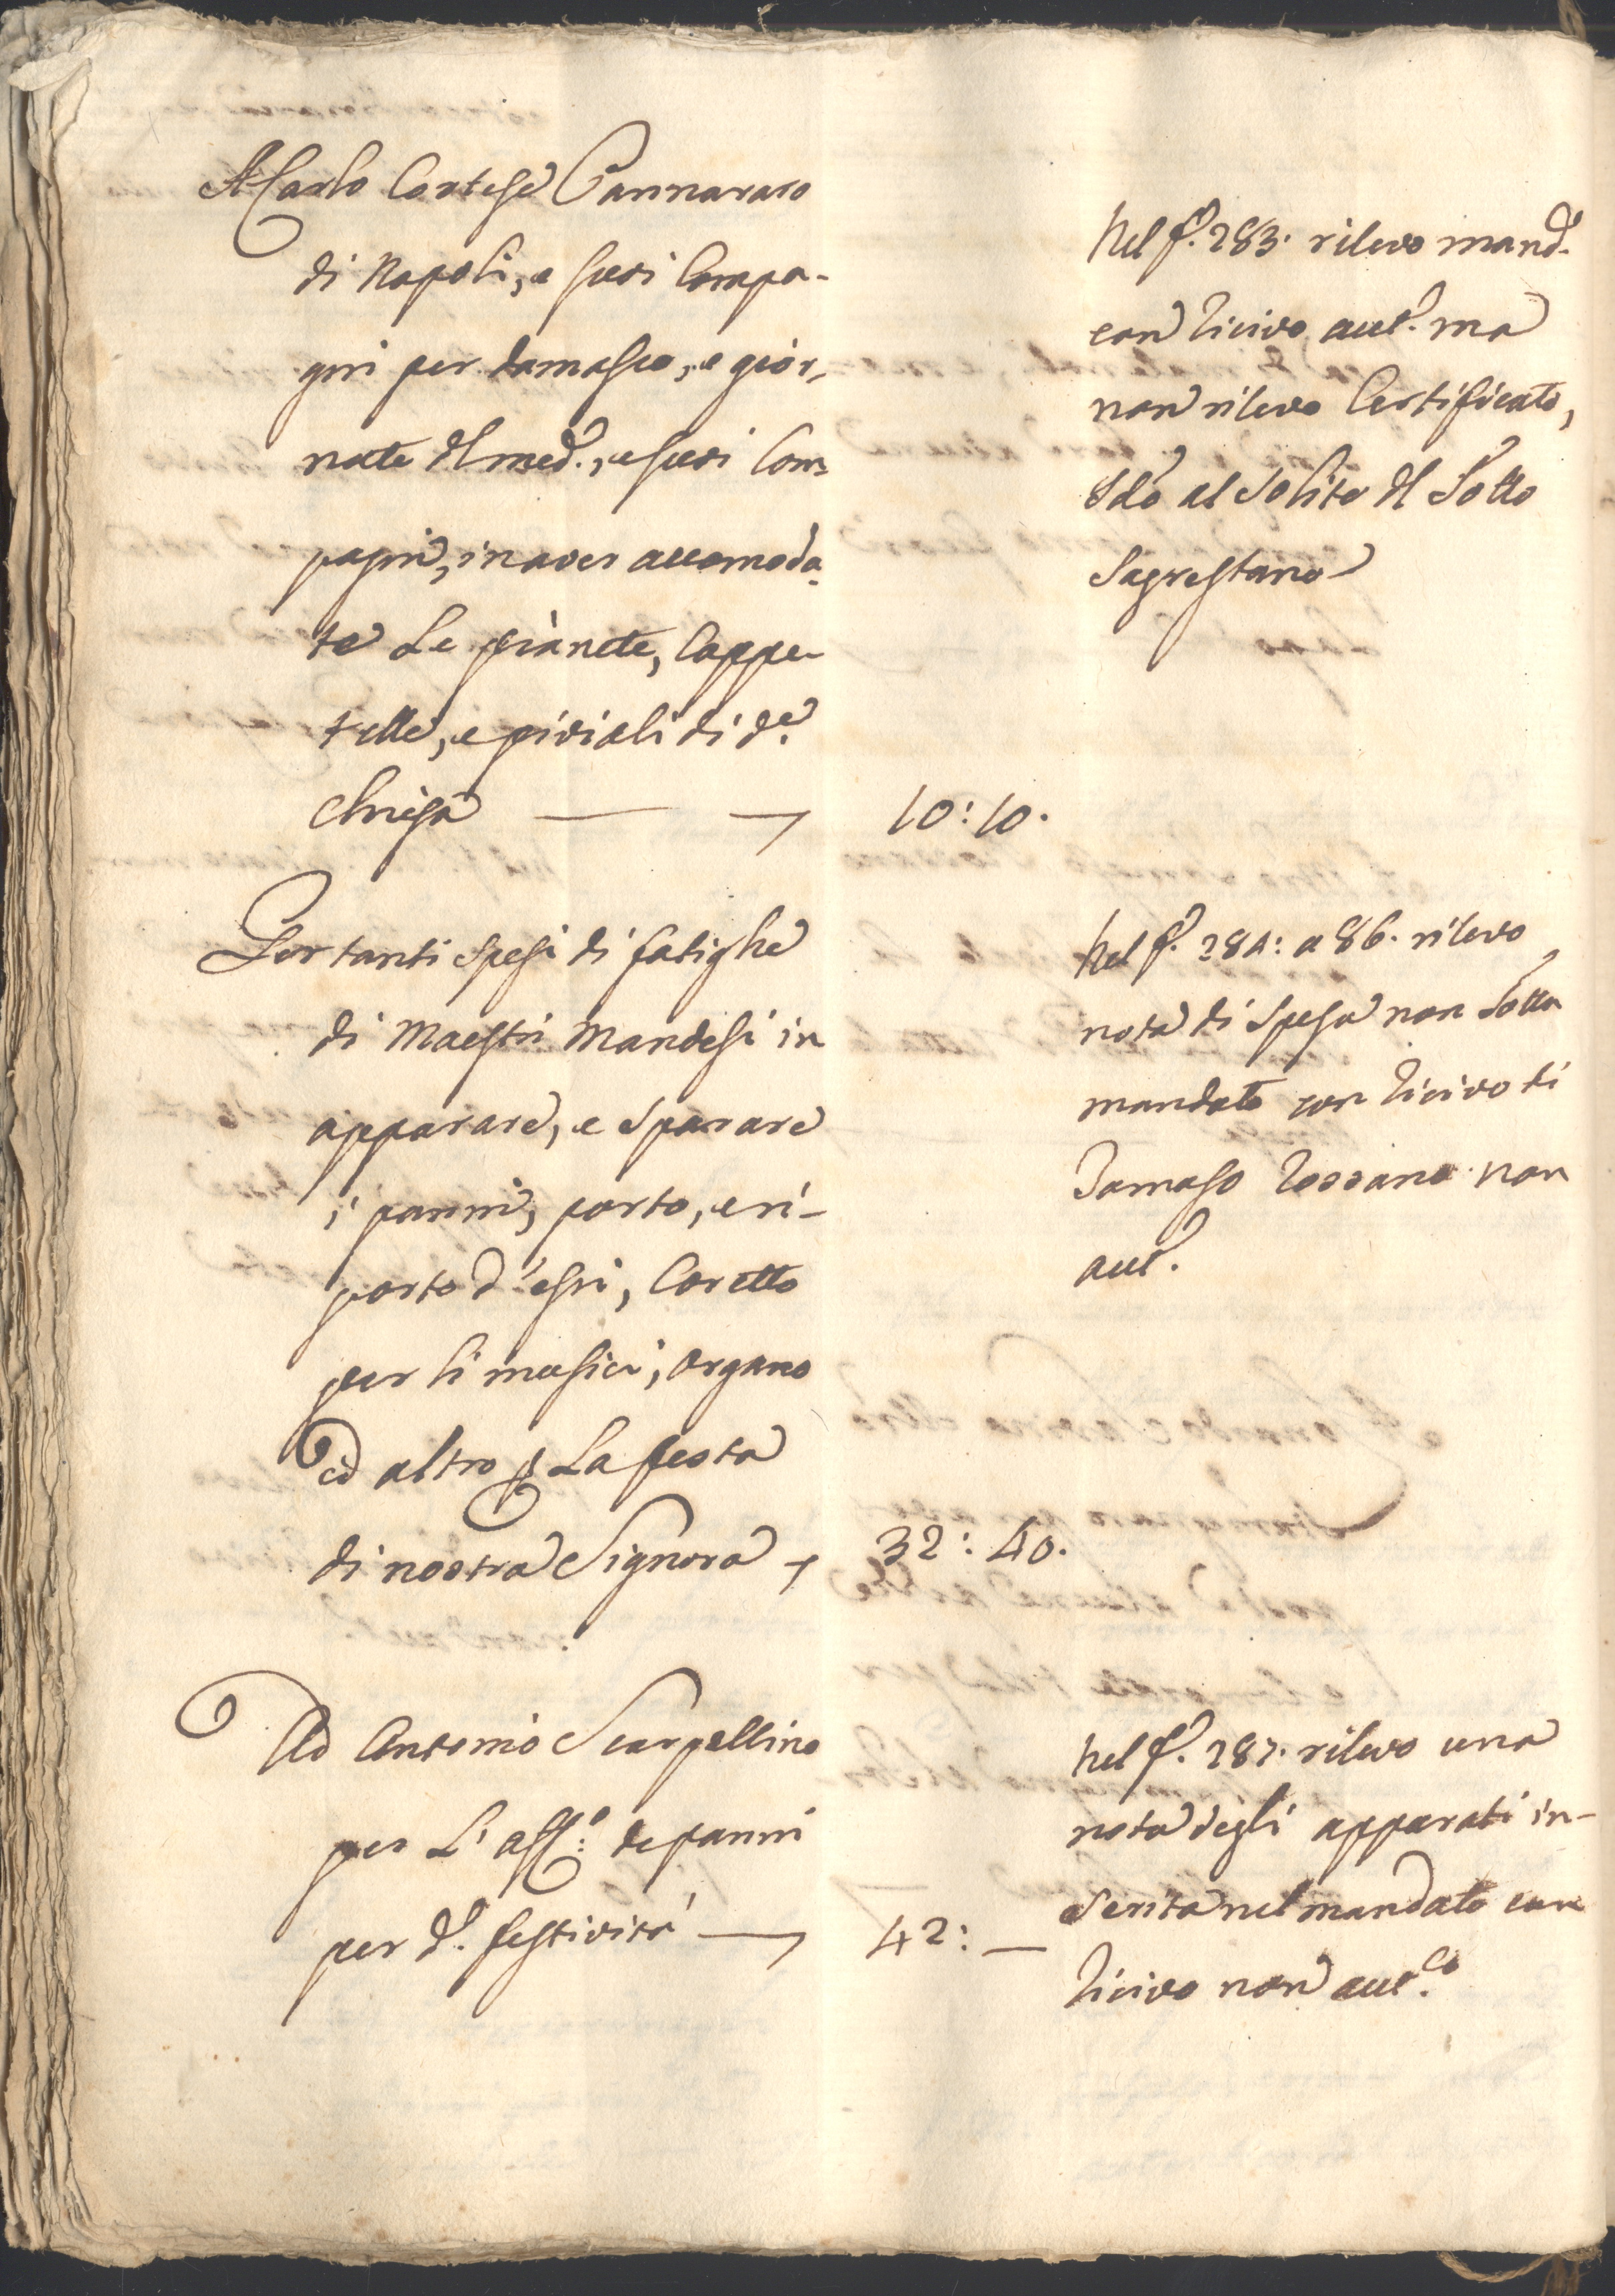 A Carlo Cortese Pannararo
di Napoli, e suoi Compa-
gni per damasco, e gior,
nate dl med., e suoi Com
pagni, in aver accomoda
te Le pianete, Cappe-
telle, e piviali di d.e
Chiesa — 10:10.
Nel f. 283. rilevo mand.
con ricivo aut. ma
non rilevo Certificato,
al Solito dl Sotto
Sagrestano
Per tanti spesi di fatighe
di Maestri Mandesi in
apparare, e sparare
i panni, porto, e ri-
porto d'essi, Coretto
per li musici, organo
ed altro p La festa
di nostra Signora 32:40.
Nel f. 284: a 86. rilevo
nota di Spesa non Sotto
mandato con ricivo di
Tomaso non
aut.
Ad Antonio Scarpellino
per L'aff.o de panni
per d. festività — 42: —
Nel f. 287. rilevo una
nota degli apparati in-
serita nel mandato con
ricivo non aut.co